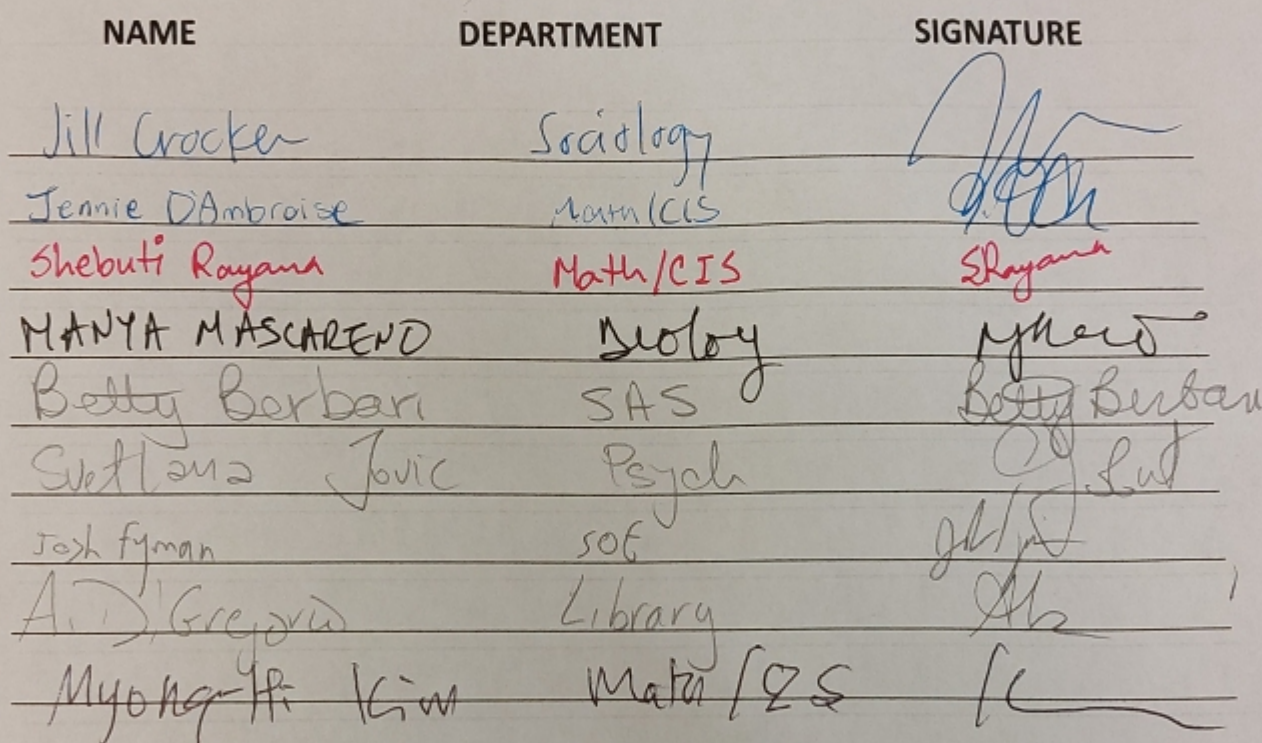 NAME DEPARTMENT SIGNATURE
Jill Crocker Sociology
Jennie D'Ambroise Math/CIS
Shebuti Rayana Math/CIS SRayana
MANYA MASCARENO Biology
Betty Berbari SAS Betty Berbari
Svetlana Jovic Psych
Josh Fyman SOE
A. Di Gregorio Library
Myong-Hi Kim Math/CIS